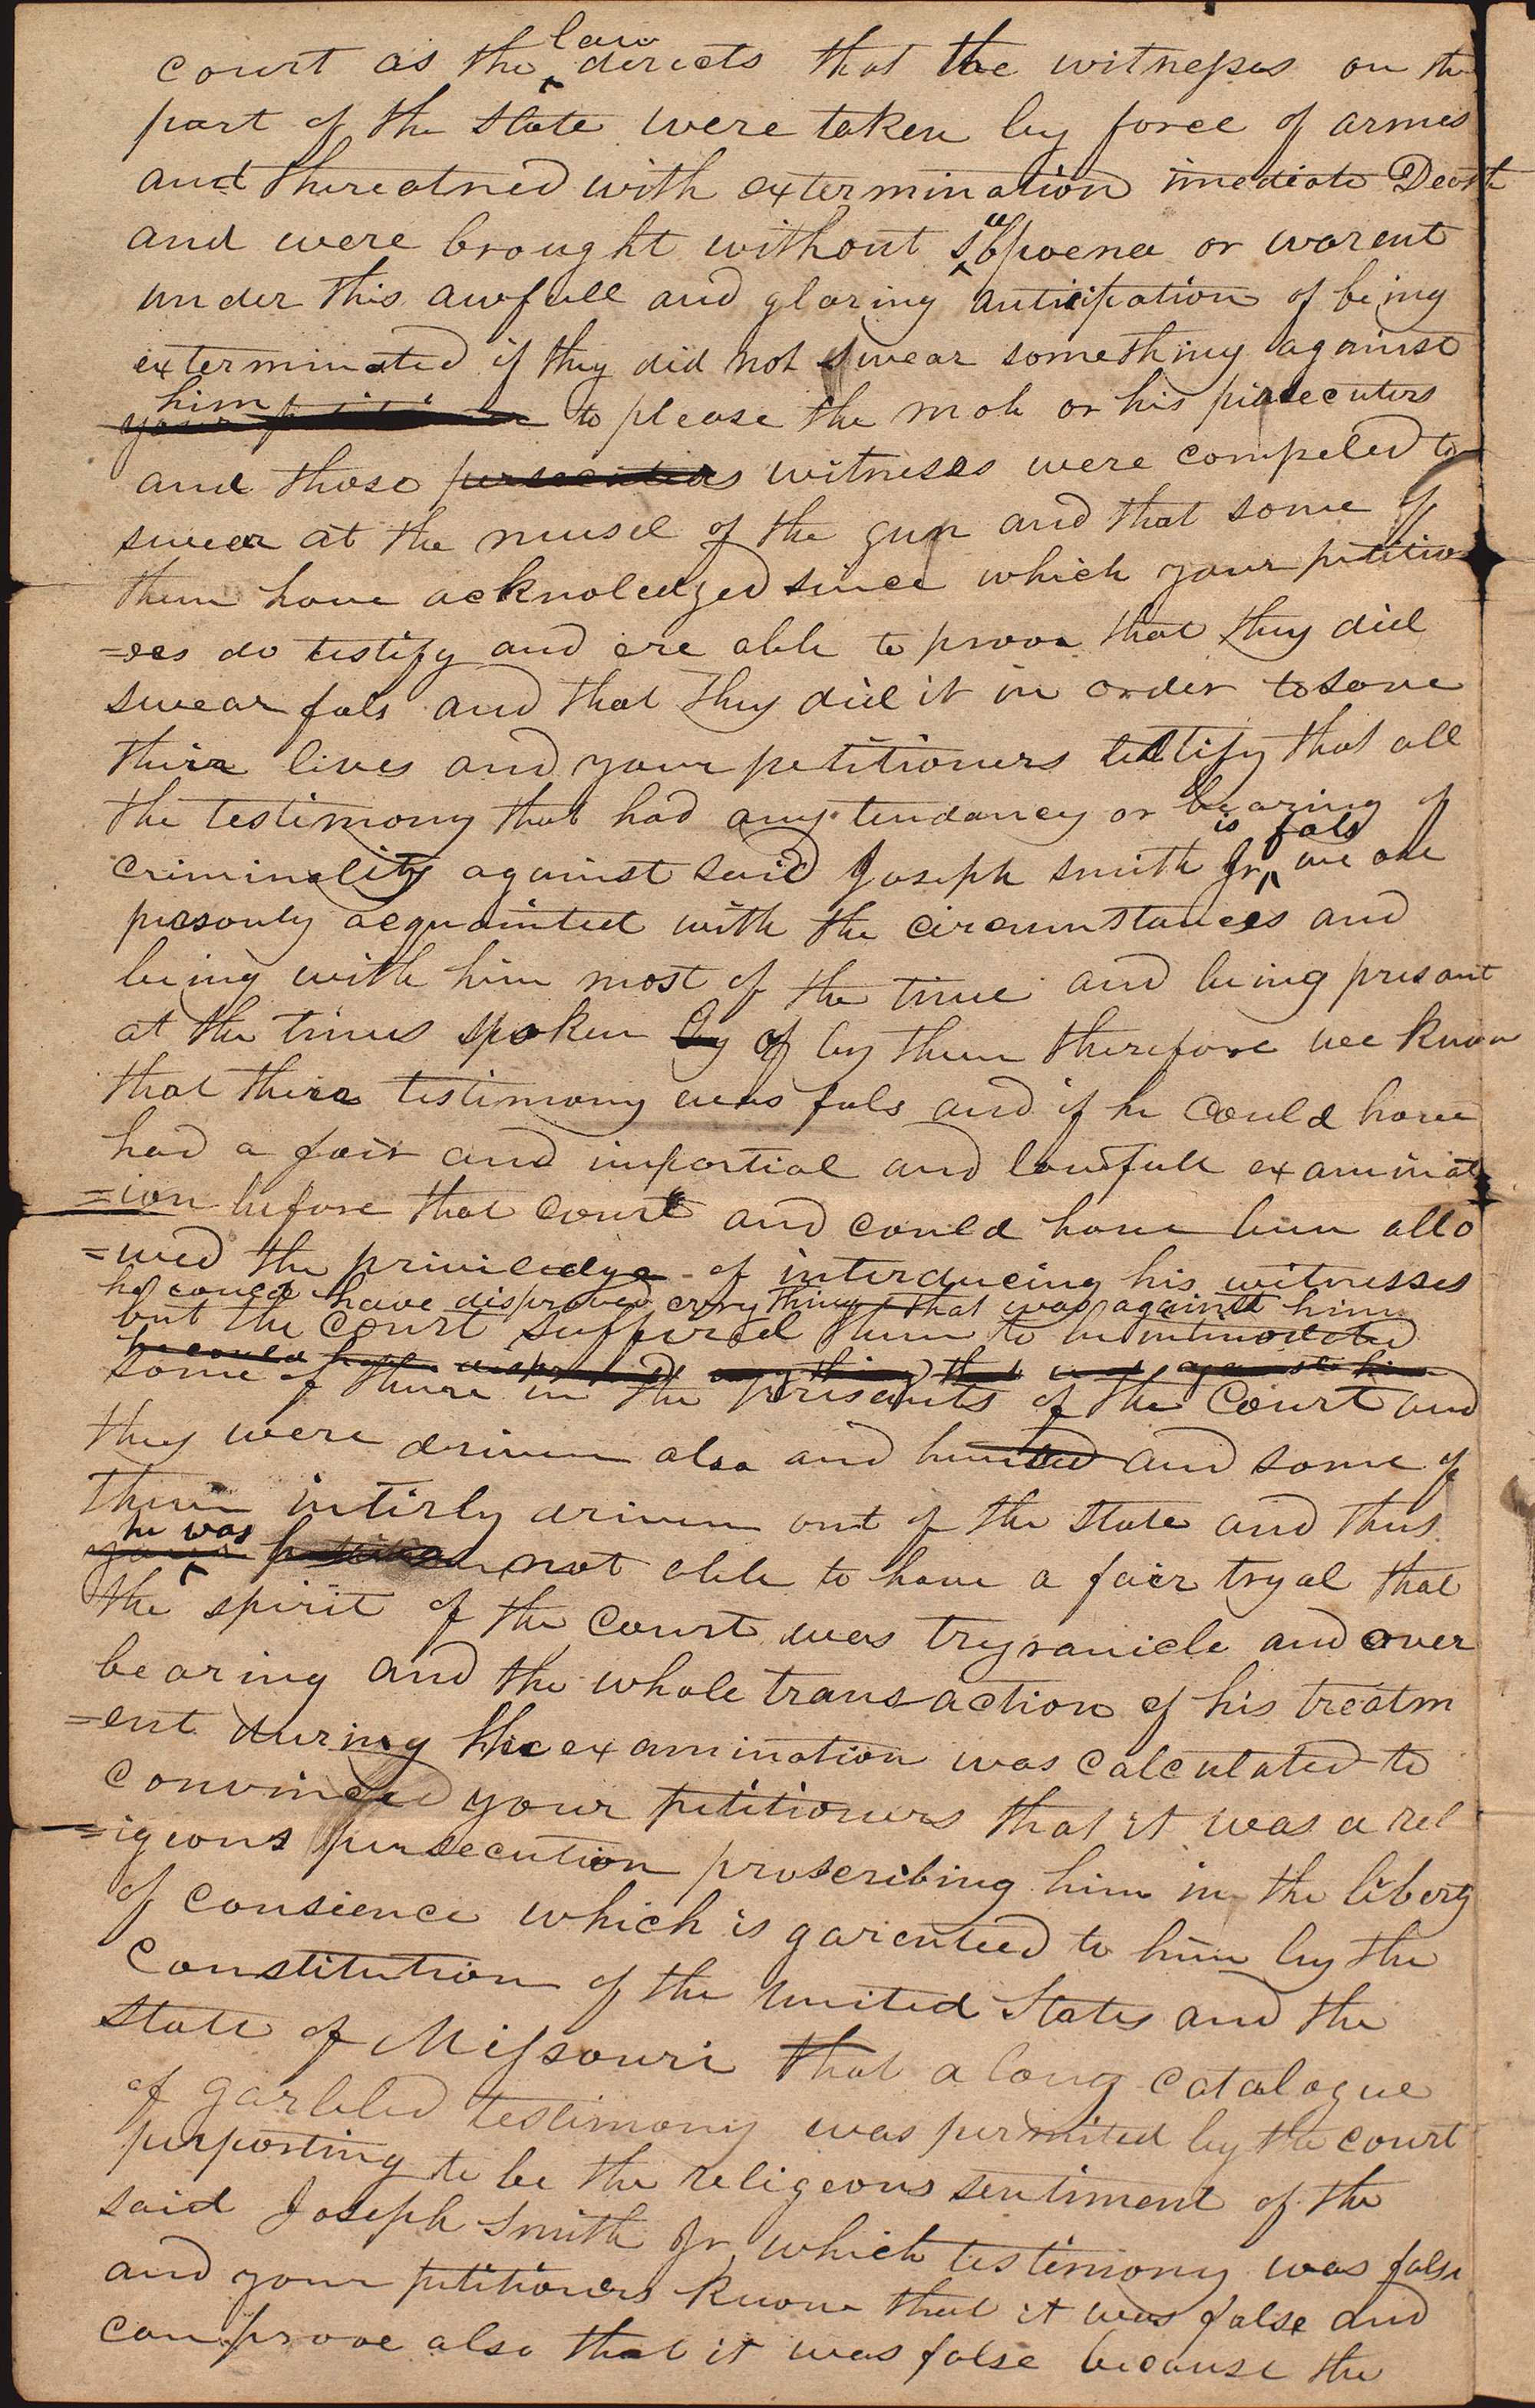 court as the law directs that the witnesses on the
part of the state were taken by force of armes
and threatned with extermination imediate Death
and were brought without subpoena or warent
under this awfull and glaring anticipation of being
exterminated if they did not swear something against
him to please the mob or his persecuters
and those persecuters witneses were compeled to
swear at the musel of the gun and that some of
them have acknoledged since which your petition
=ees do testify and are able to prove that they did
swear fals and that they did it in order to save
their lives and your petitioners testify that all
the testimony that had any tendancy or bearing of
criminality against said Joseph Smith Jr is fals we are
personly acquainted with the circumstances and
being with him most of the time and being presant
at the times spoken by of by them therefore we know
that their testimony was fals and if he could have
had a fair and impartial and lawfull examinat
=ion before that court and could have been allo
=wed the priviledge of interducing his witnesses
he could have disproved every thing that was against him
but the court suffered them to be intimodated
he could have disproved every thing that was against him
some of them in the prisants of the Court and
they were driven also and hunted and some of
them intirly driven out of the State and thus
he was not able to have a fair tryal that
the spirit of the Court was tryranicle and over
bearing and the whole transaction of his treatm
=ent during the examination was calculated to
convince your petitioners that it was a rel
=igeous persecution proscribing him in the liberty
of consience which is garenteed to him by the
Constitution of the United States and the
State of Missouri that a long catalogue
of garbled testimony was permited by the court
purporting to be the religeous sentiment of the
said Joseph Smith Jr which testimony was false
and your petitioners know that it was false and
can prove also that it was false because the